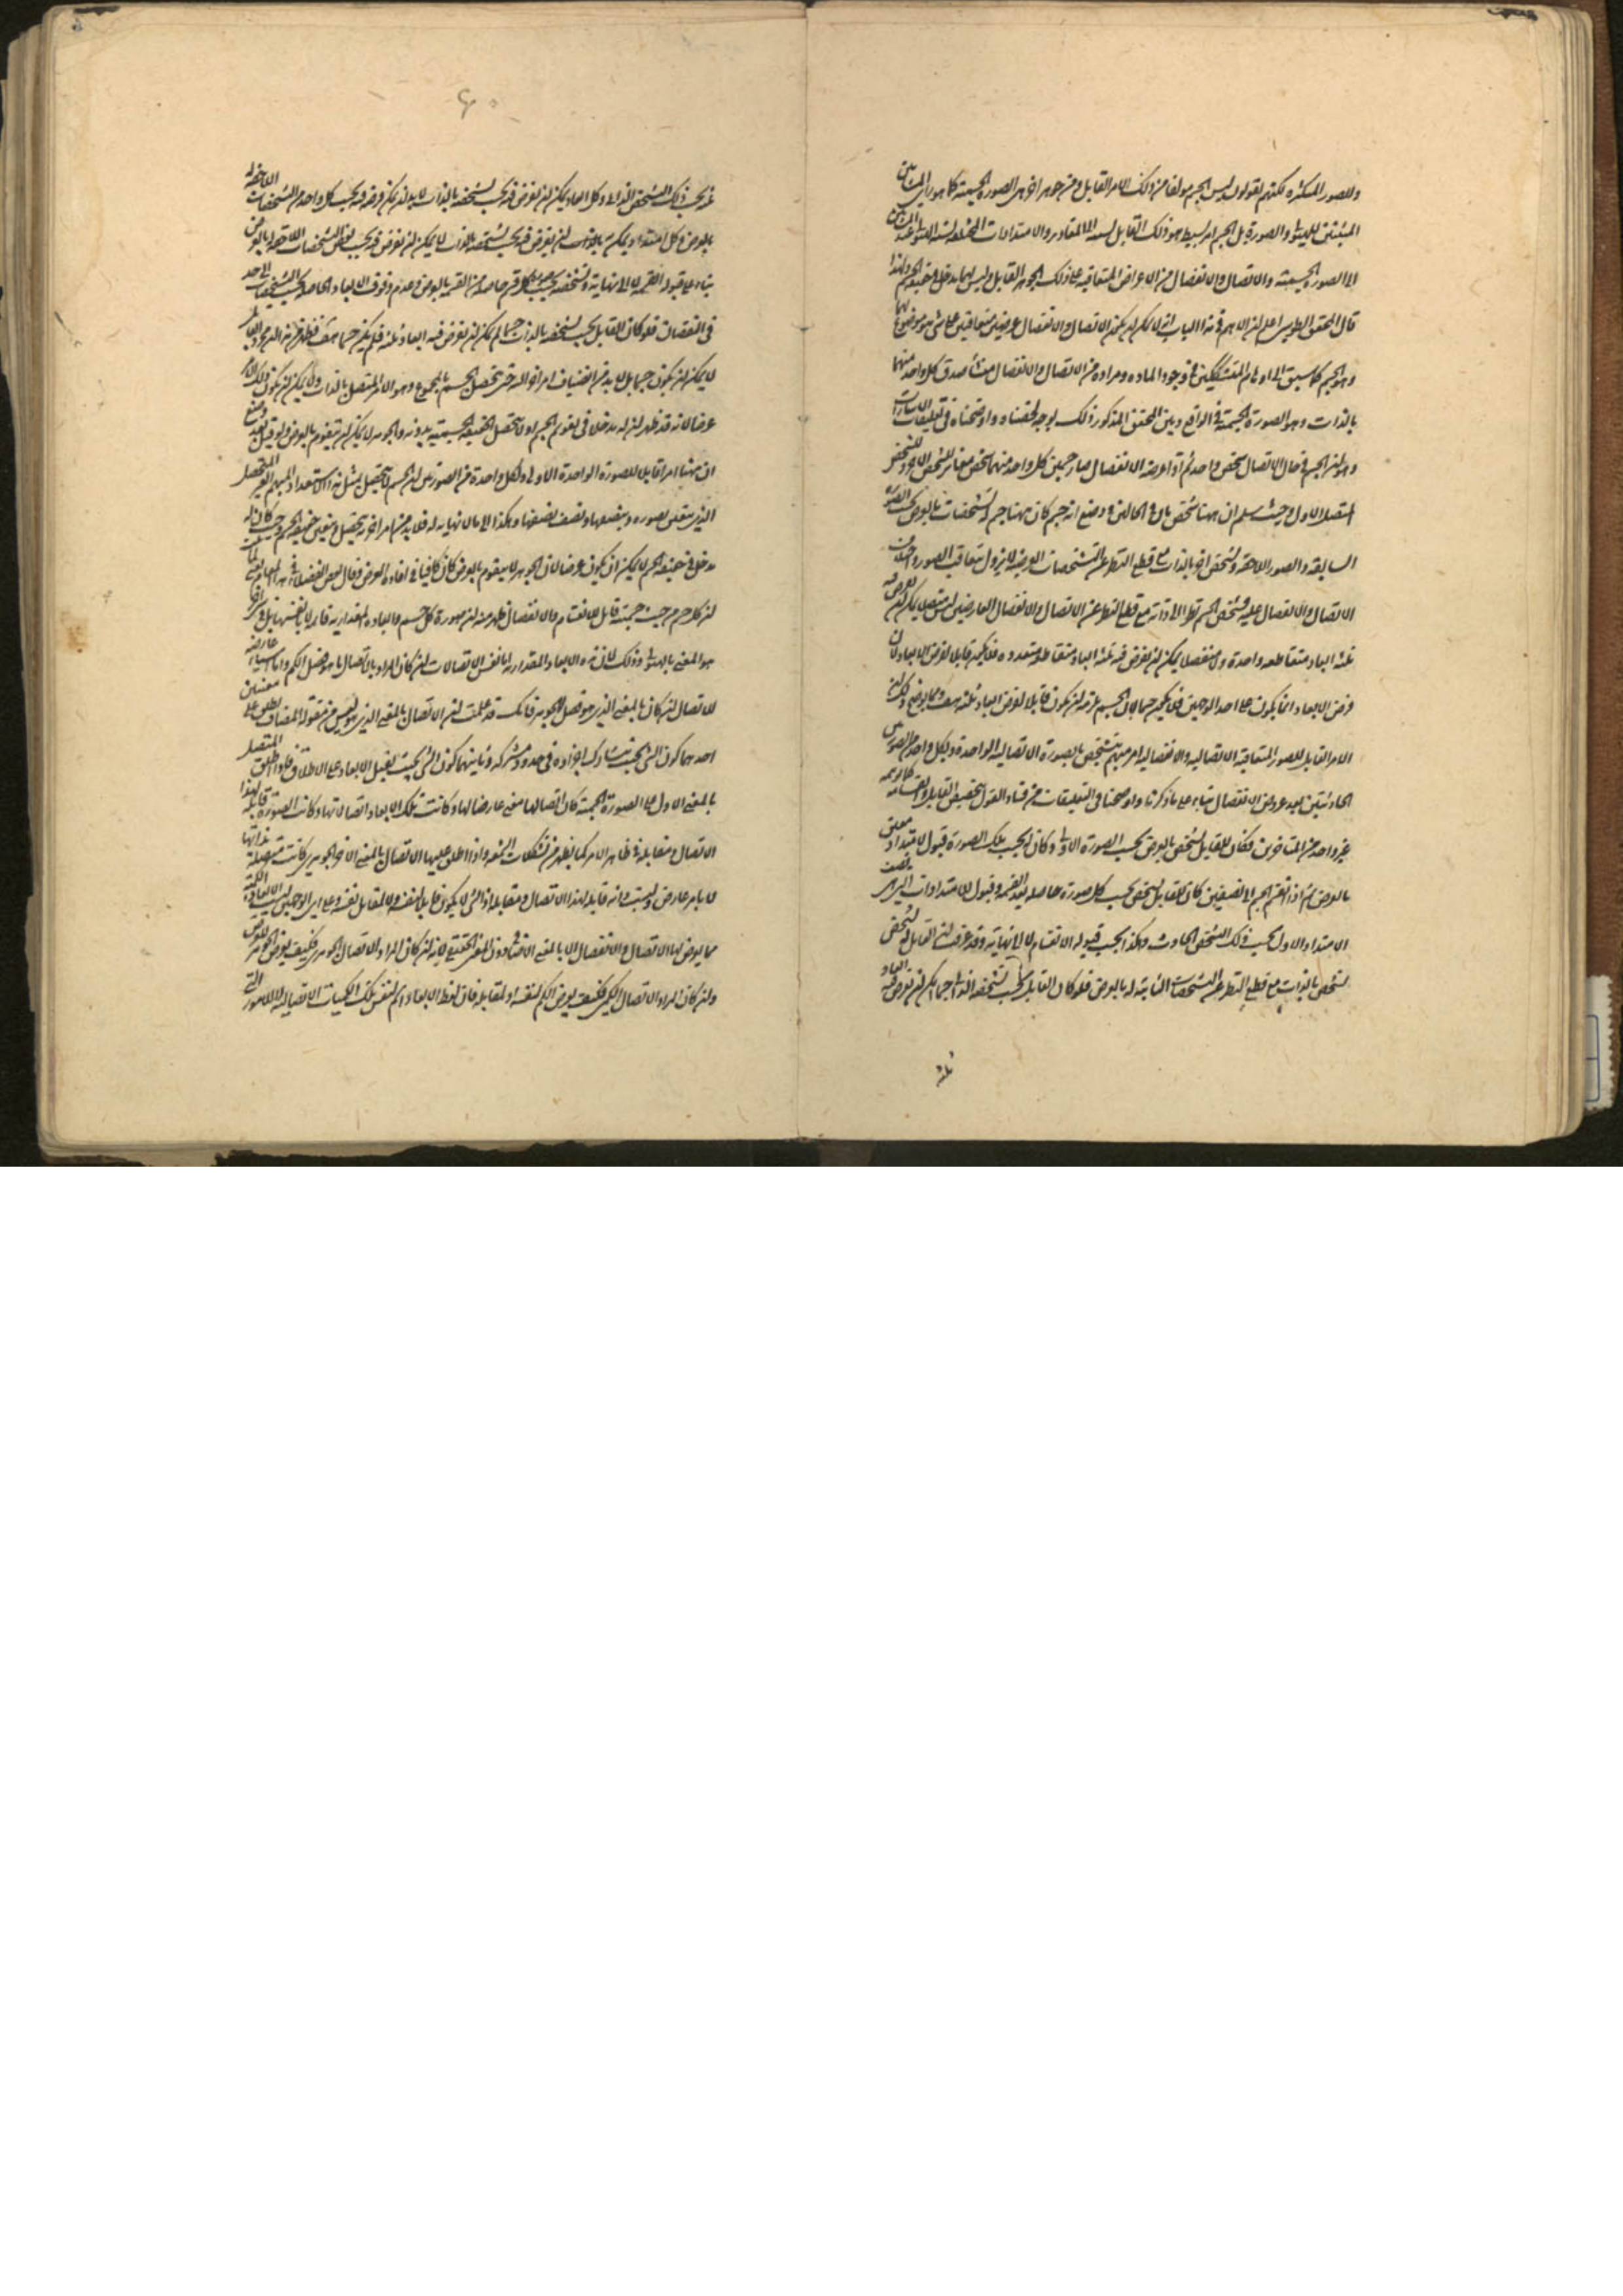 وللصور المتكثره لكنهم يقولون ليس الجسم مولفا من ذلك الامر القابل ومن جوهر اخر هى الصورة الجسمية كما هو راى المشائين
المثبتين للهيولى والصورة بل الجسم امر بسيط هو ذلك القابل نسبته الى المقادير والامتدادات المختلفة نسبة الهيولى عند المشائين
الى الصورة الجسمية والاتصال والانفصال من الاعراض المتعاقبة على ذلك الجوهر القابل وليس لهما مدخل فى حقيقة الجسم ولهذا
قال المحقق الطوسى اعلم ان الاهم فى هذا الباب ان يكون الاتصال والانفصال عرضين متعاقبين على شئ هو موضوع لهما
وهو الجسم كما سبق الى اوهام المتشككين فى وجود الماده ومراده من الاتصال والانفصال منشأ صدق كل واحد منهما
بالذات وهو الصورة الجسمية فى الواقع وبين المحقق المذكور ذلك بوجه لخصناه واوضحناه فى تعليقات الاشارات
وهو ان الجسم فى حال الاتصال شخص واحد ثم اذا عرضه الانفصال صار جسمين كل واحد منهما شخص مغاير للشخص الاخر وللشخص
المتصل الاول وحيث سلم ان ههنا شخص باق فى الحالين وضع انه جسم كان ههنا جسم له تشخصات بالعرض بحسب الصورة
السابقه والصور اللاحقة وتشخص اخر بالذات مع قطع النظر عن التشخصات العرضية لا يزول بتعاقب الصور واختلاف
الاتصال والانفصال عليه وتشخص الجسم نظرا الى ذاته مع قطع النظر عن الاتصال والانفصال العارضين ليس متصلا يمكن ان يفرض فيه
ثلثه ابعاد متقاطعه واحدة ولا منفصلا يمكن ان يفرض فيه ثلثه ابعاد متقاطعه متعدده فلا يكون قابلا لفرض الابعاد لان
فرض الابعاد انما يكون على احد الوجهين فلا يكون جسما لان الجسم يلزمه ان يكون قابلا لفرض ابعاد ثلثه هف ومما يوضح ذلك ان
الامر القابل للصور المتعاقبة الاتصاليه والانفصاليه امر مبهم يتشخص بالصورة الاتصاليه الواحدة وبكل واحد من الصورتين
الحادثتين بعد عروض الانفصال بناء على ما ذكرنا واوضحنا فى التعليقات من فساد القول بتشخيص القابل وانقسامه كما توهمه
غير واحد من المتاخرين فكان للقابل تشخص بالعرض بحسب الصورة الاولى وكان له بحسب تلك الصورة قبول لامتداد معين
بالعرض ثم اذا انقسم الجسم الى نصفين كان للقابل تشخص بحسب كل صورة حاصله بعد القسمه وقبول لامتدادات اخرى نصف
الامتداد الاول بحسب ذلك الشخص الحادث وهكذا بحسب قبوله الانقسام لا الى نهاية وقد عرفت ان للقابل تشخص
تشخص بالذات مع قطع النظر عن التشخصات الثابته له بالعرض فلو كان القابل بحسب تشخصه الذاتى جسما يمكن ان يفرض فيه ابعاد
ثلثه
۶۰
ثلثه بحسب ذلك التشخص الذاتى وكل ابعاد يمكن ان يفرض فيه بحسب تشخصه بالذات لابد ان يمكن فرضه فيه بحسب كل واحد من التشخصات اللاحقة له
بالعرض وكل امتداد يمكن بالذات ان يفرض فيه بحسب تشخصه بالذات لا يمكن ان يفرض فيه بحسب بعض التشخصات اللاحقة له بالعرض
بناء على قبوله القسمه لا الى نهاية وتشخصه بحسب كل قسم حاصل من القسمة بالعرض وعدم وقوف الابعاد الحاصله بحسب التشخصات الى حد
فى النقصان فلو كان القابل بحسب تشخصه بالذات جسما لم يكن ان يفرض فيه ابعاد ثلثه فلم يكن جسما هف فظهر من هذا ان الجوهر القابل
لا يمكن ان يكون جسما بل لابد من انضياف امر اخر اليه حتى يتحصل الجسم بالمجموع وهو الامر المتصل بالذات ولا يمكن ان يكون ذلك الامر
عرضا لانه قد ظهر ان له مدخلا فى تقوم الجسم اذ لا يتحصل الحقيقة الجسمية بدونه والجوهر لا يمكن ان يتقوم بالعرض ولو قيل بعد تسليم
ان ههنا امر قابل للصورة الواحدة الاولى ولكل واحدة من الصورتين ان الجسم لا يتحصل بمثل هذا الاستعداد المبهم الغير المتحصل
الذى يتعلق بصوره وبنصفها ونصف نصفها وهكذا الى ما لا نهاية له فلابد من امر اخر يتحصل ويتعين به حقيقة الجسم وحيث كان له
مدخل فى حقيقة الجسم لا يمكن ان يكون عرضا لان الجوهر لا يتقوم بالعرض كان كافيا فى افادة الغرض وقال بعض الفضلاء فى هذا المقام يعنى لما ثبت
ان كل جسم من حيث جسمية قابل للانقسام والانفصال ظهر منه ان صورة كل جسم وابعاده المقدارية قائمه لا بنفسها بل بشئ اخر
هو المعنى بالهيولى وذلك لان هذه الابعاد المقداريه اما نفس الاتصالات ان كان المراد بالاتصال ما هو فصل الكم واما اشياء عارضه
للاتصال ان كان بالمعنى الذى هو فصل الجوهر فانك قد علمت ان الاتصال بالمعنى الذى هو ليس من مقولة المضاف يطلق على معنيين
احدهما كون الشئ بحيث يتشارك اجزاؤه فى حدود مشتركه وثانيهما كون الشئ بحيث يقبل الابعاد على الاطلاق فلو اطلق المتصل
بالمعنى الاول على الصورة الجسمية كان اتصالها معنى عارضا لها وكانت تلك الابعاد اتصالاتها وكانت الصورة قابلة لهذا
الاتصال ومقابله فى ظاهر الامر كما يظهر من تشكلات الشمعه واذا اطلق عليها الاتصال بالمعنى الاخر الجوهرى كانت متصلة بذاتها
لا بامر عارض وليست هى قابله لهذا الاتصال ومقابله اذ الشئ لا يكون قابلا لنفسه ولا لمقابل نفسه وعلى اى الوجهين ليست الابعاد الكمية
مما يعرض لها الاتصال والانفصال الا بالمعنى الاضافى دون المعنى الحقيقى لانه ان كان المراد الاتصال الجوهرى فكيف يعرض الجوهر للعرض
وان كان المراد الاتصال الكمى فكيف يعرض الكم لنفسه او لمقابله فان لفظ الابعاد اسم لنفس تلك الكميات الاتصاليه للامور التى